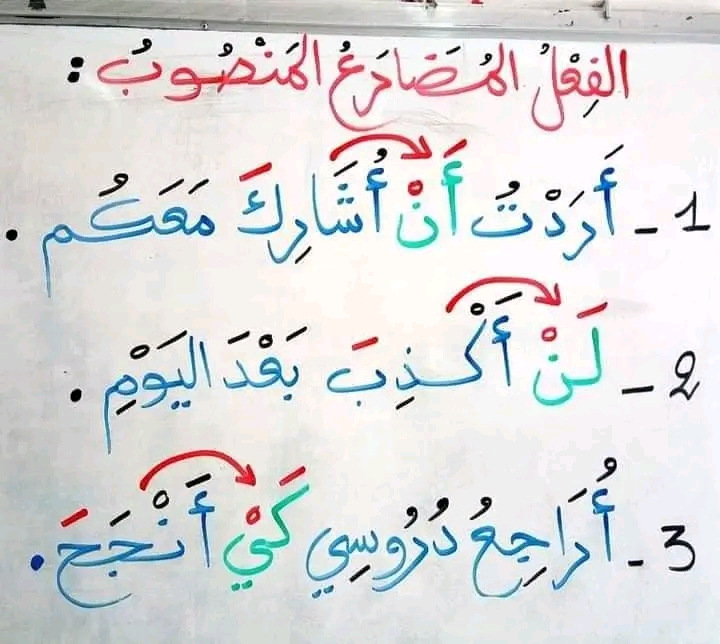 الفِعْلُ المُضَارِعُ المَنْصُوبُ :
1 - أَرَدْتُ أَنْ أُشَارِكَ مَعَكُم .
2 - لَنْ أَكْذِبَ بَعْدَ اليَوْمِ .
3 - أُرَاجِعُ دُرُوسِي كَيْ أَنْجَحَ .